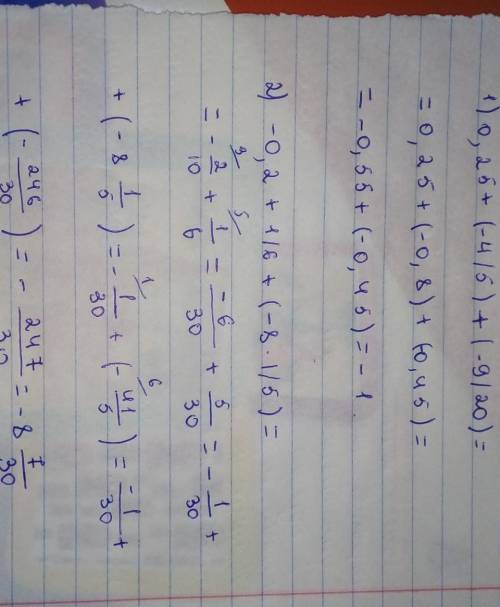 1) 0,25 + (-4/5) + (-9/20) =
= 0,25 + (-0,8) + (-0,45) =
= -0,55 + (-0,45) = -1
2) -0,2 + 1/6 + (-8 · 1/5) =
= - 2/10 + 1/6 = -6/30 + 5/30 = - 1/30 +
+ (-8 1/5) = - 1/30 + (- 41/5) = -1/30 +
+ (- 246/30) = - 247/30 = -8 7/30